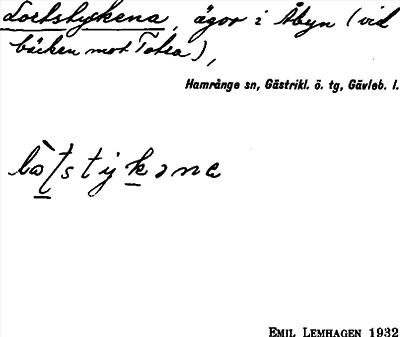 Lortstyckena, ägor i Åbyn (vid
bäcken mot Tolsa),
Hamrånge sn, Gästrikl. ö. tg, Gävleb. l.
EMIL LEMHAGEN 1932